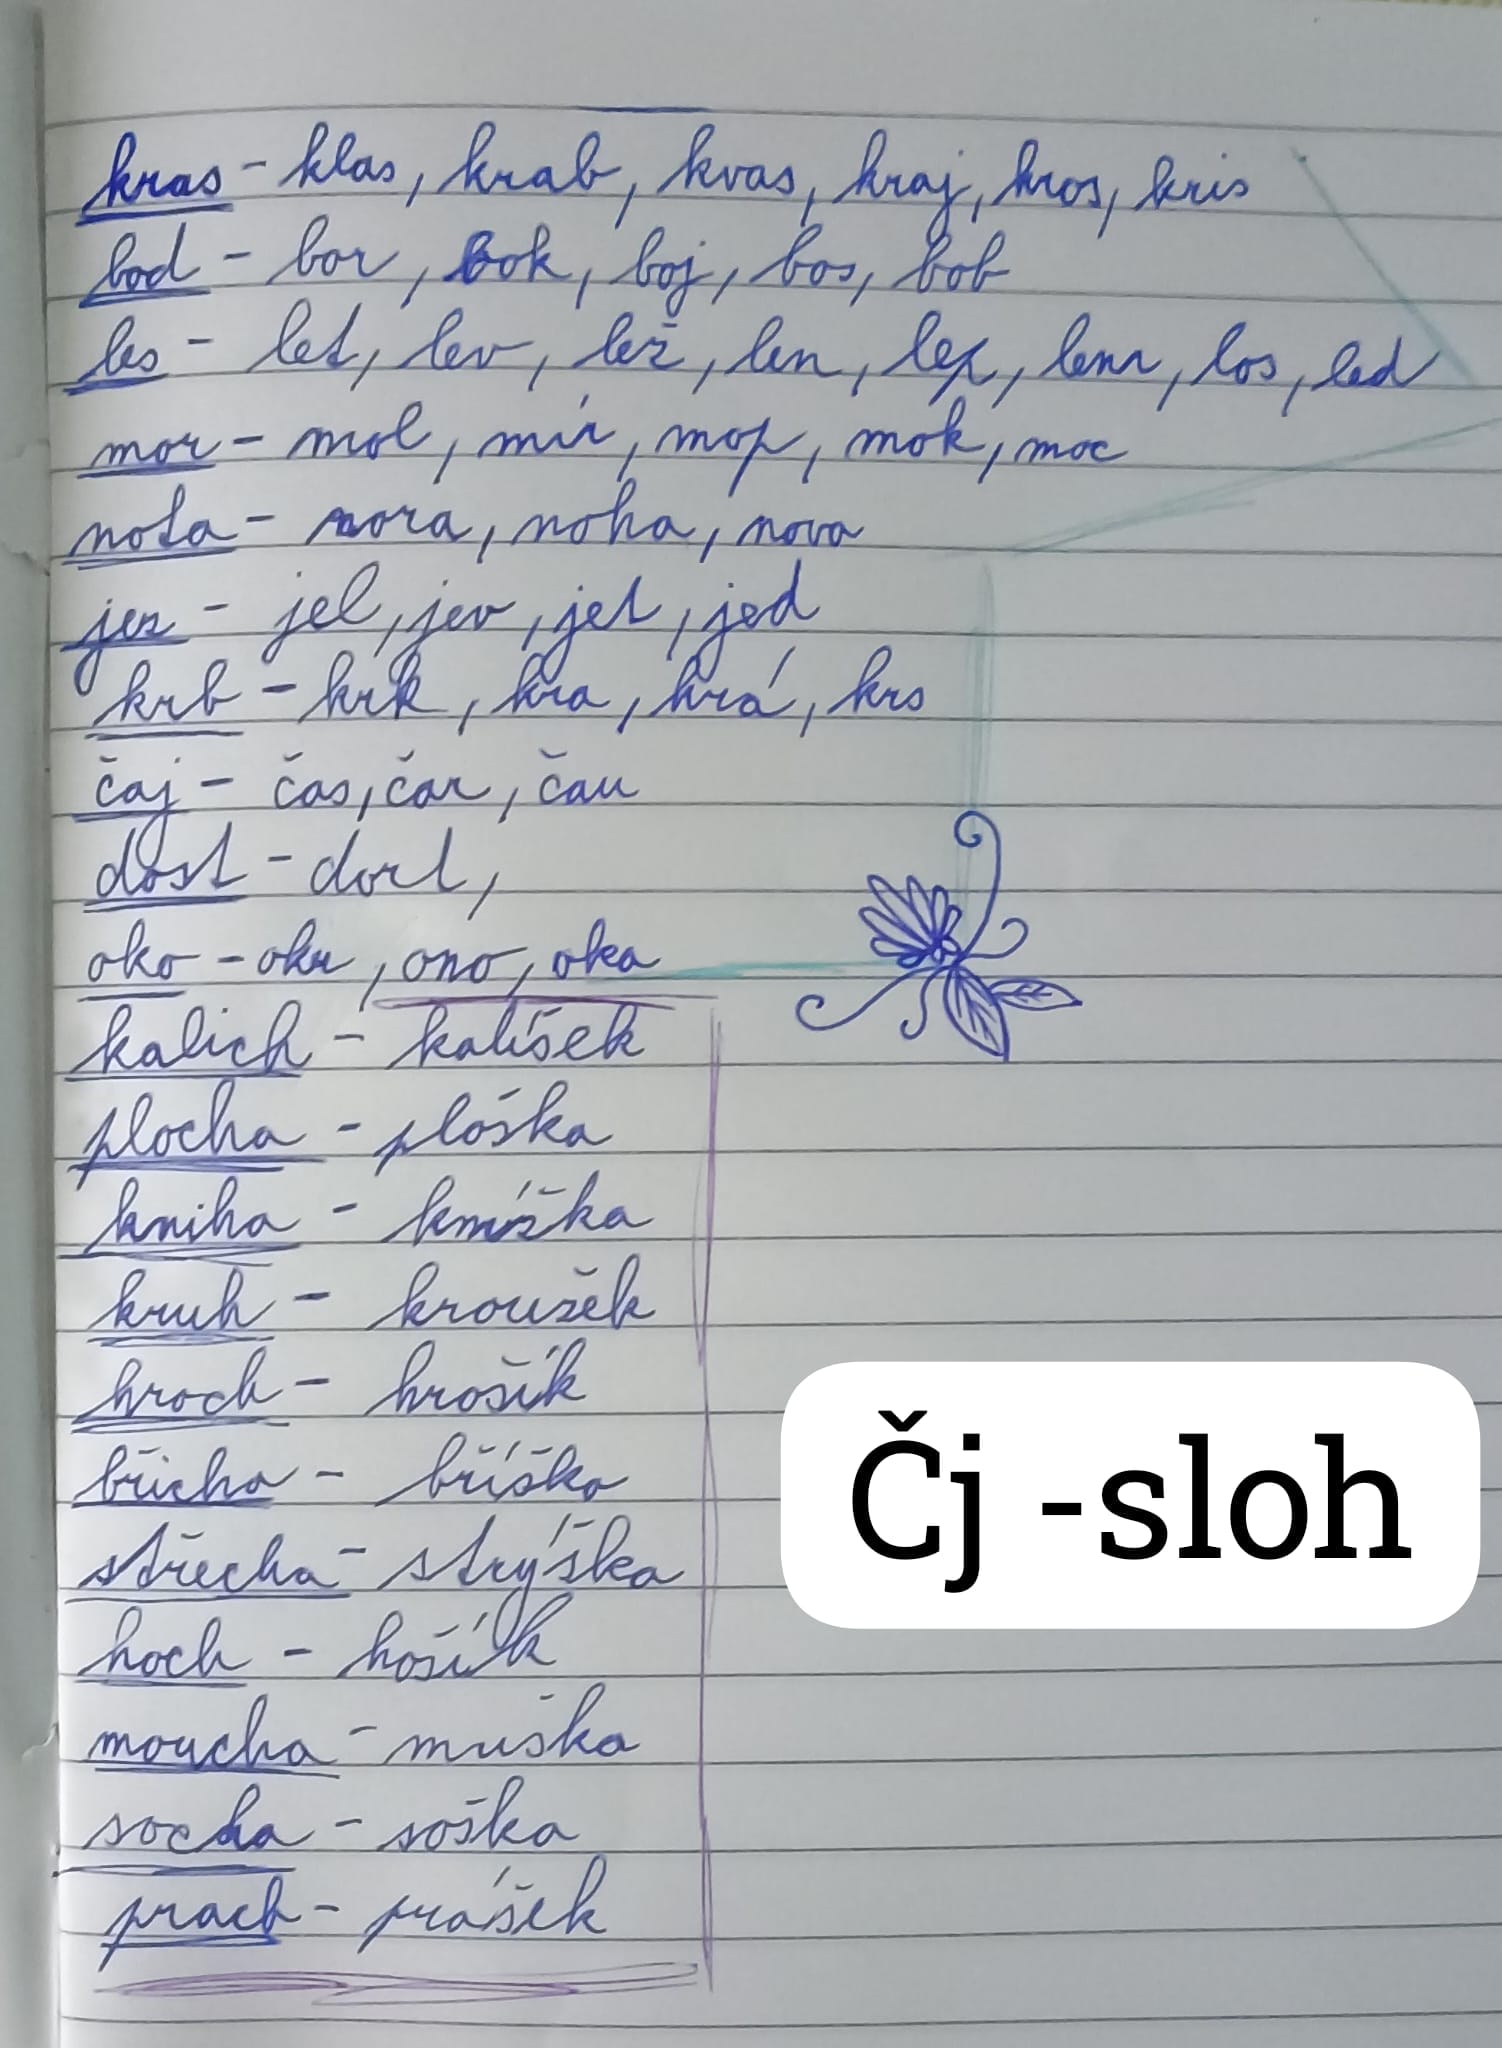 kras - klas, krab, kvas, kraj, kros, kris
bod - bor, bok, boj, bos, bob
les - let, lev, lež, len, lep, lem, los, led
mor - mol, mír, mop, mok, moc
nota - nora, noha, nova
jez - jel, jev, jet, jed
krb - krk, kra, hrá, krs
čaj - čas, čar, čau
dost - dort,
oko - okr, ono, oka
kalich - kalíšek
plocha - ploška
kniha - knížka
kruh - kroužek
hroch - hrošík
břicho - bříško
střecha - strýška
hoch - hošík
moucha - muška
Čj -sloh
socha - soška
prach - prášek